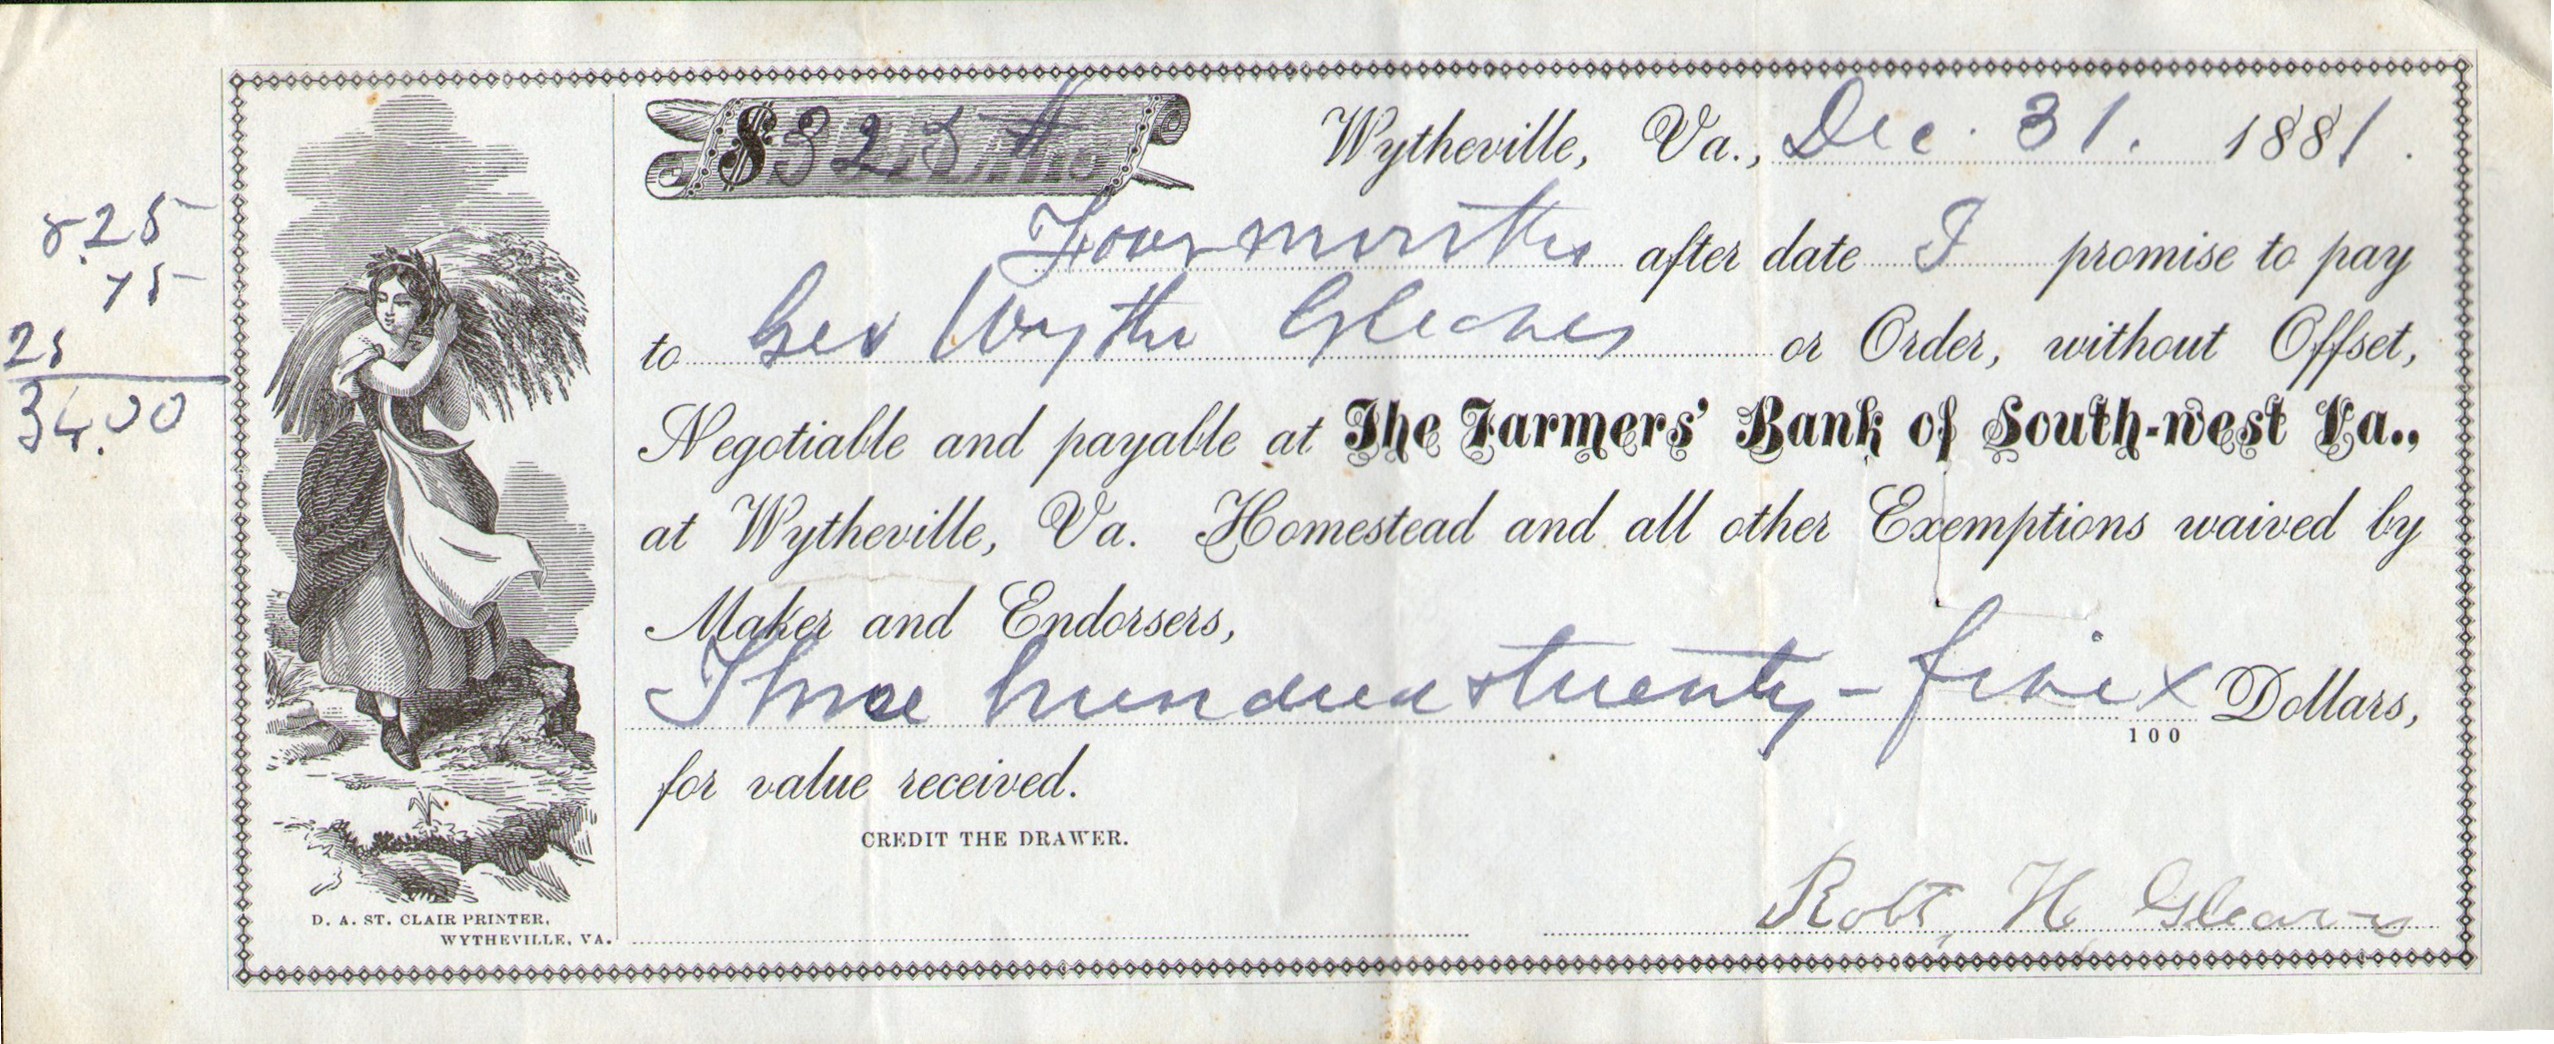 $325
Wytheville, Va., Dec. 31. 1881.
Four months after date I promise to pay
to Geo Wythe Gleaves or Order, without Offset,
Negotiable and payable at The Farmers' Bank of South-west Va.,
at Wytheville, Va. Homestead and all other Exemptions waived by
Maker and Endorsers,
Three hundred & twenty-five x Dollars,
100
for value received.
CREDIT THE DRAWER.
Robt, H, Gleaves
D. A. ST. CLAIR PRINTER,
WYTHEVILLE, VA.
8.25
75
25
34.00